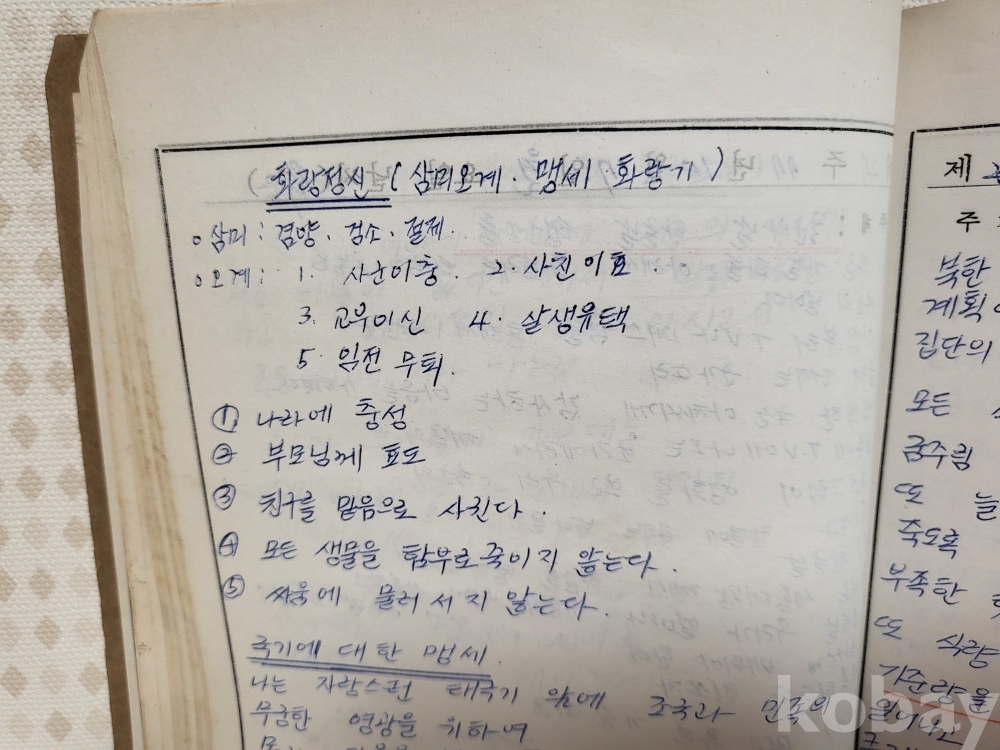 화랑정신 (삼미오계 · 맹세 · 화랑기)
o 삼미 : 겸양 · 검소 · 절제 .
o 오계 : 1. 사군이충 . 2. 사친이효 .
3. 교우이신 4. 살생유택
5. 임전무퇴 .
① 나라에 충성
② 부모님께 효도
③ 친구를 믿음으로 사긴다 .
④ 모든 생물을 함부로 죽이지 않는다 .
⑤ 싸움에 물러서지 않는다 .
국기에 대한 맹세 .
나는 자랑스런 태극기 앞에 조국과 민족의
무궁한 영광을 위하여
제
주
북한
계획
집단의
모든
굶주림
또 늘
죽도록
부족한
또 식량
기준량을
kobay